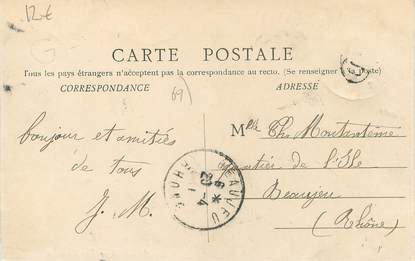 12€
CARTE POSTALE
Tous les pays étrangers n'acceptent pas la correspondance au recto. (Se renseigner à la Poste)
CORRESPONDANCE
69
ADRESSÉ
bonjour et amitiés
de tous
J. M.
Mlle Ph. Moutanteme
de l'Isle
Beaujeu
(Rhône)
BEAUJEU
RHONE